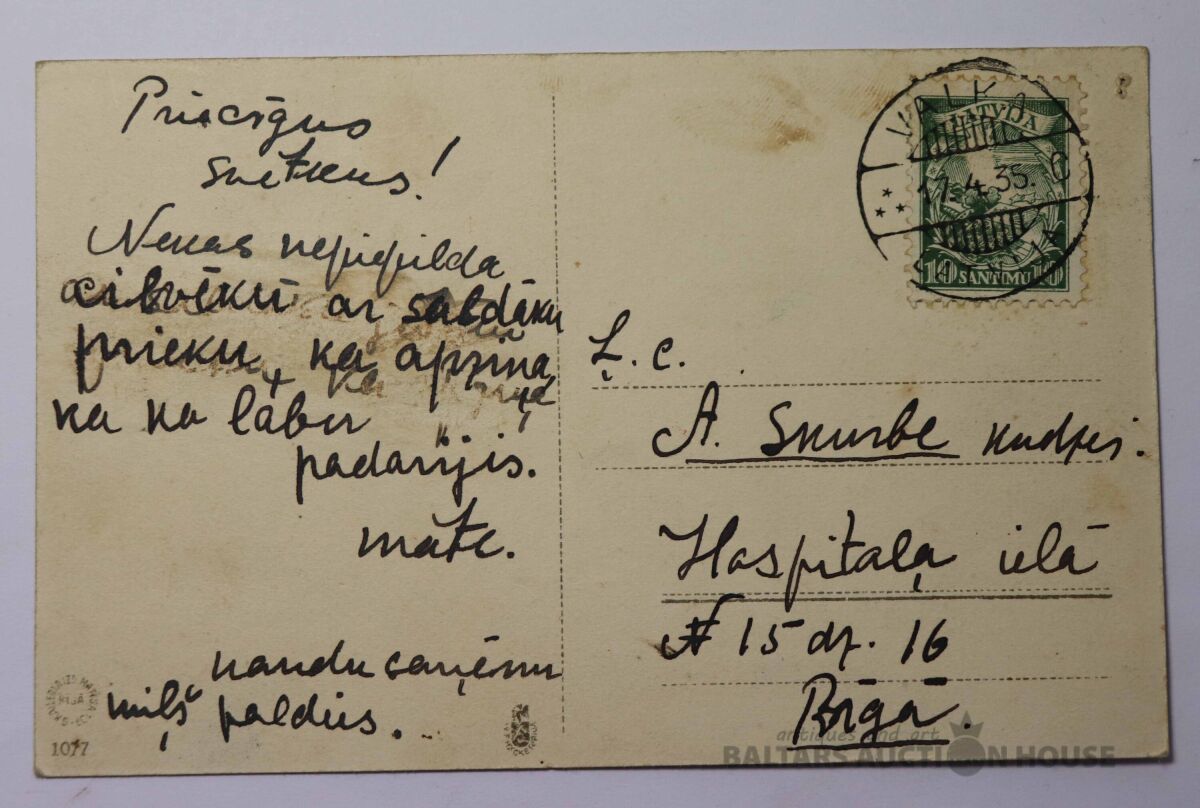 Priecīgus
svētkus!
Nekas nepiepilda
cilvēku ar saldāku
prieku, kā apziņa,
ka ko labu
padarījis.
māte.
naudu saņēmu
mīļš paldies.
1077
VALKA
17.4.35. C
LATVIJA
10 SANTIMU 10
Ļ. c.
A. Skurbe kundzei.
Hospitaļa ielā
№ 15 dz. 16
Rīgā.
antiques and art
BALTARS AUCTION HOUSE